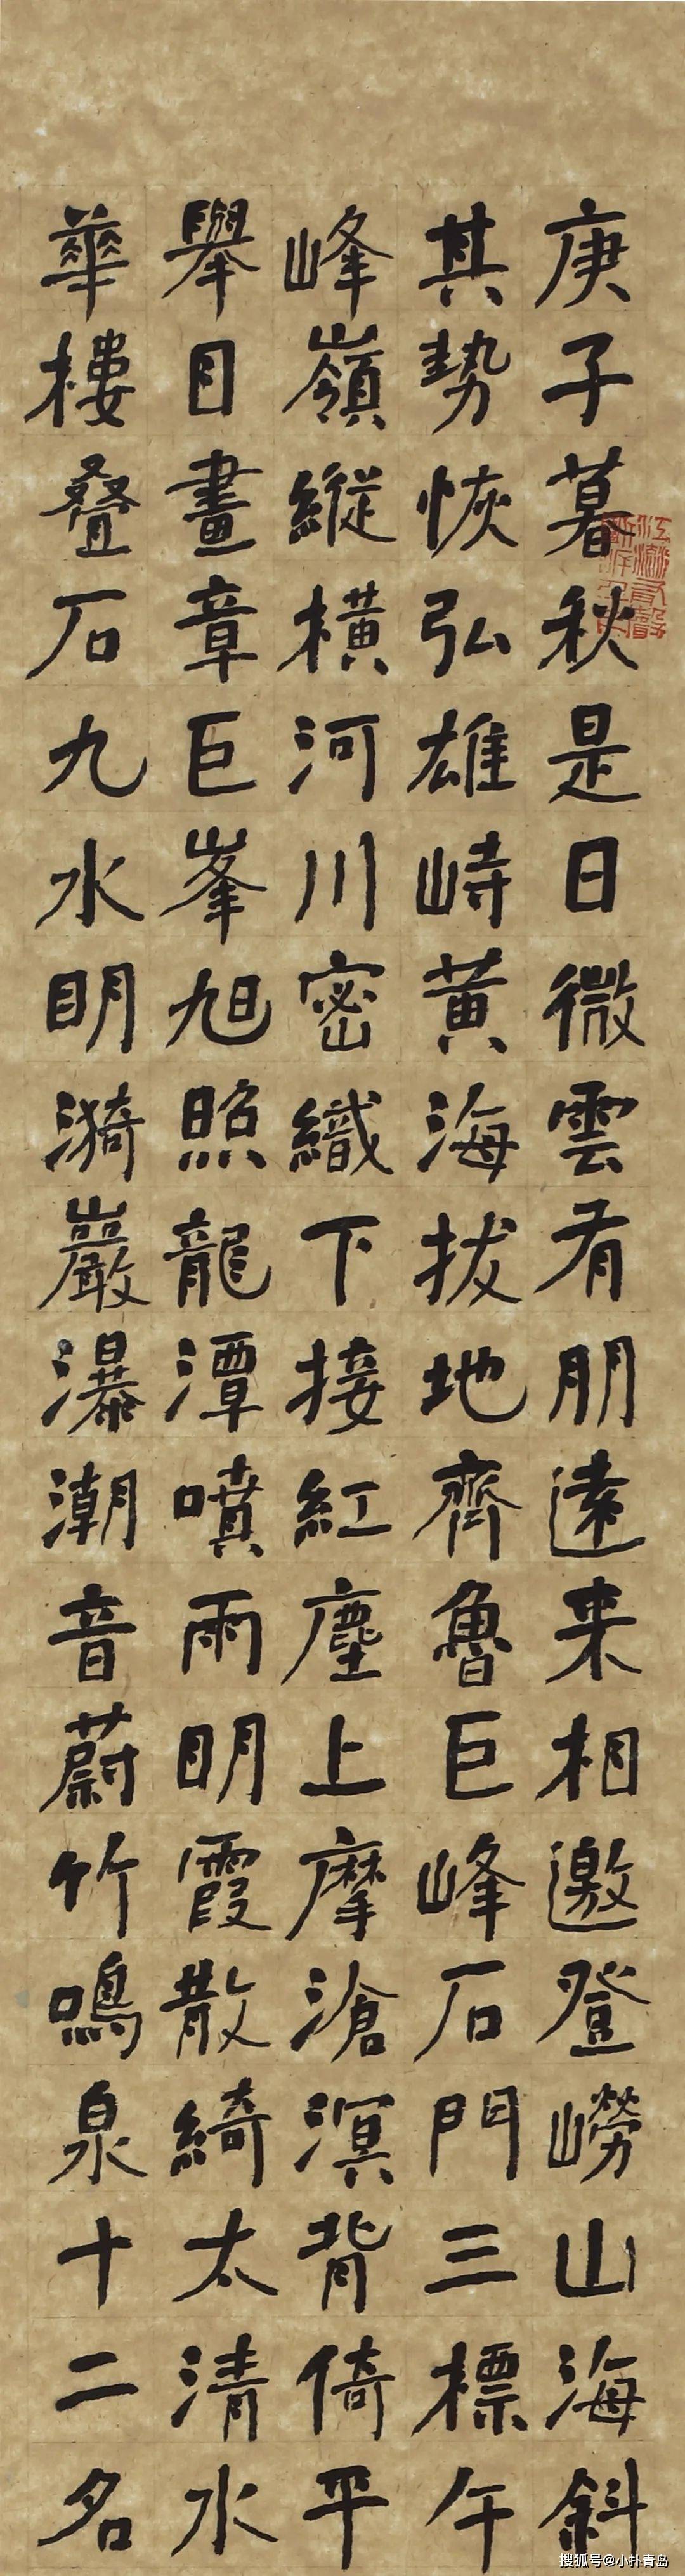 庚子暮秋是日微雲有朋遠来相邀登嶗山海斜
其勢恢弘雄峙黃海拔地齊魯巨峰石門三標午
峰嶺縱橫河川密織下接紅塵上摩滄溟背倚平
舉目畫章巨峯旭照龍潭噴雨明霞散綺太清水
華樓疊石九水明漪巖瀑潮音蔚竹鳴泉十二名
搜狐号@小扑青岛